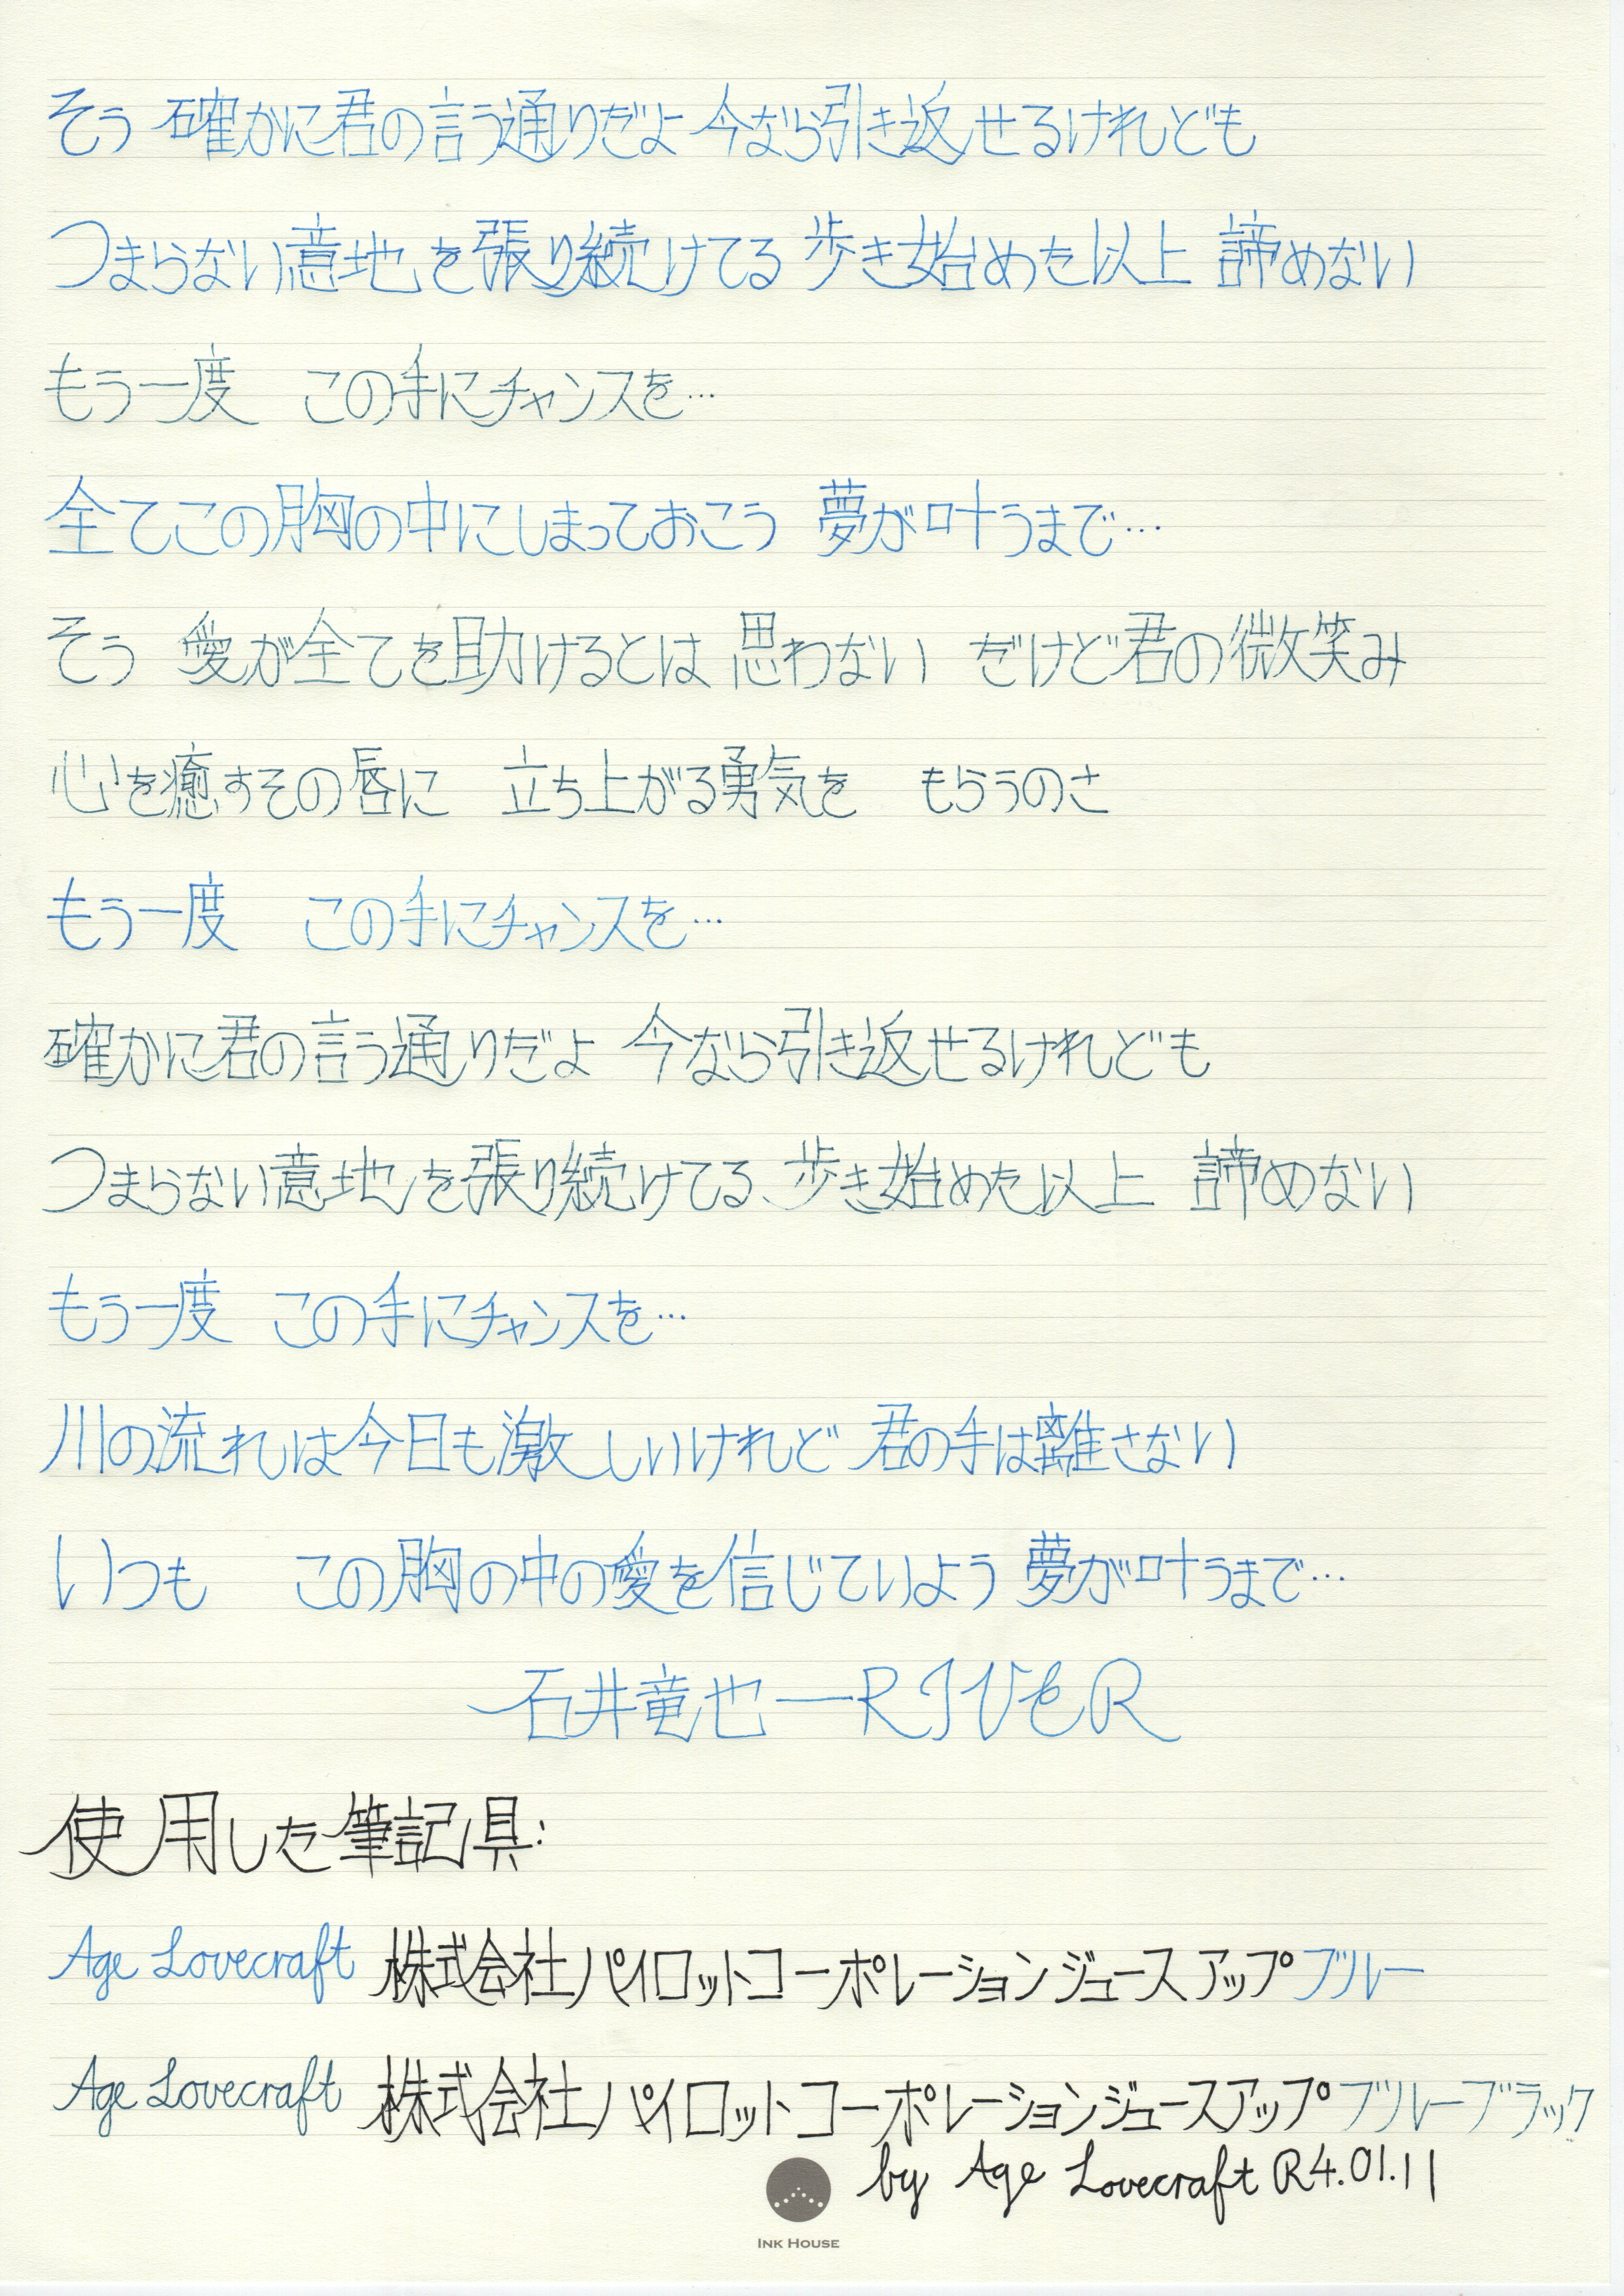 そう 確かに君の言う通りだよ 今なら引き返せるけれども
つまらない意地を張り続けてる 歩き始めた以上 諦めない
もう一度 この手にチャンスを…
全てこの胸の中にしまっておこう 夢が叶うまで…
そう 愛が全てを助けるとは 思わない だけど君の微笑み
心を癒すその唇に 立ち上がる勇気を もらうのさ
もう一度 この手にチャンスを…
確かに君の言う通りだよ 今なら引き返せるけれども
つまらない意地を張り続けてる、歩き始めた以上 諦めない
もう一度 この手にチャンスを…
川の流れは今日も激しいけれど 君の手は離さない
いつも この胸の中の愛を信じていよう 夢が叶うまで…
石井竜也—RIVER
使用した筆記具:
Age Lovecraft 株式会社パイロットコーポレーションジュースアップブルー
Age Lovecraft 株式会社パイロットコーポレーションジュースアップブルーブラック
by Age Lovecraft R4.01.11
INK HOUSE